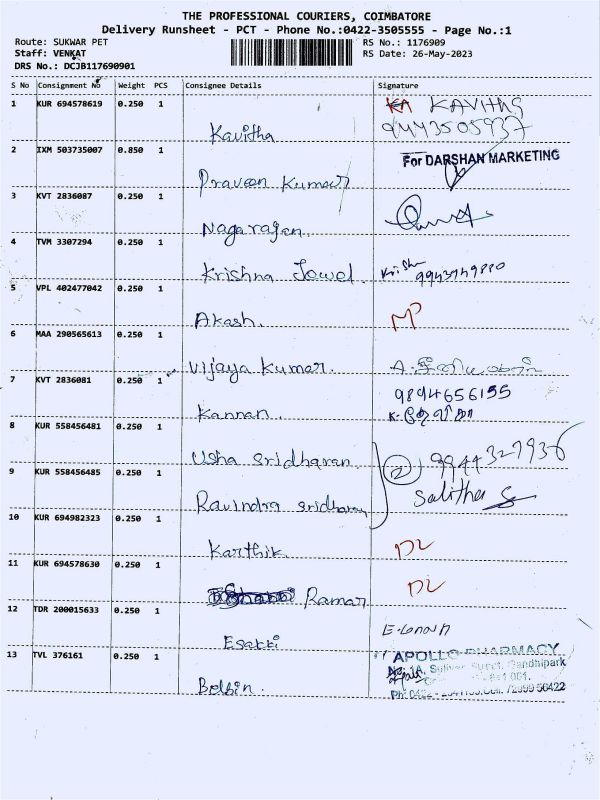 THE PROFESSIONAL COURIERS, COIMBATORE
Delivery Runsheet - PCT - Phone No.:0422-3505555 - Page No.:1
Route: SUKWAR PET RS No.: 1176909
Staff: VENKAT RS Date: 26-May-2023
DRS No.: DCJB117690901
S No Consignment No Weight PCS Consignee Details Signature
1 KUR 694578619 0.250 1 KA KAVITHA
Kavitha 9443505937
2 IXM 503735007 0.850 1 For DARSHAN MARKETING
Praveen Kumar
3 KVT 2836087 0.250 1
Nagarajan.
4 TVM 3307294 0.250 1
Krishna Jowel Krisha
5 VPL 402477042 0.250 1
Akash. MP
6 MAA 290565613 0.250 1
Vijaya Kumar.
7 KVT 2836081 0.250 1 9894656155
Kannan.
8 KUR 558456481 0.250 1
Usha Sridharan 2 9944327936
9 KUR 558456485 0.250 1 Salitha
Ravindra Sridharan
10 KUR 694982323 0.250 1
Karthik DL
11 KUR 694578630 0.250 1 DL
Raman
12 TDR 200015633 0.250 1
Esakki
13 TVL 376161 0.250 1 APOLLO PHARMACY
No. 1A, Gandhipark
Belbin.